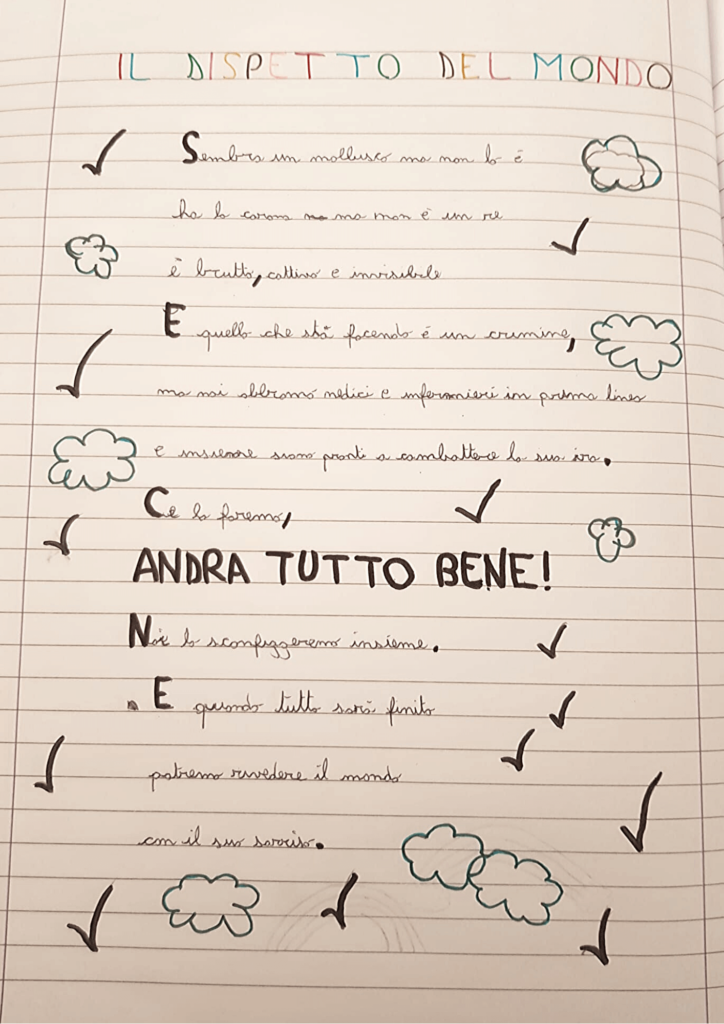 IL DISPETTO DEL MONDO
Sembra un mollusco ma non lo è
ha la corona ma ma non è un re
è brutto, cattivo e invisibile
E quello che stà facendo é un crimine,
ma noi abbiamo medici e infermieri in prima linea
e insieme siamo pronti a combattere la sua ira.
Ce la faremo,
ANDRA TUTTO BENE!
Noi lo sconfiggeremo insieme.
. E quando tutto sarà finito
potremo rivedere il mondo
con il suo sorriso.